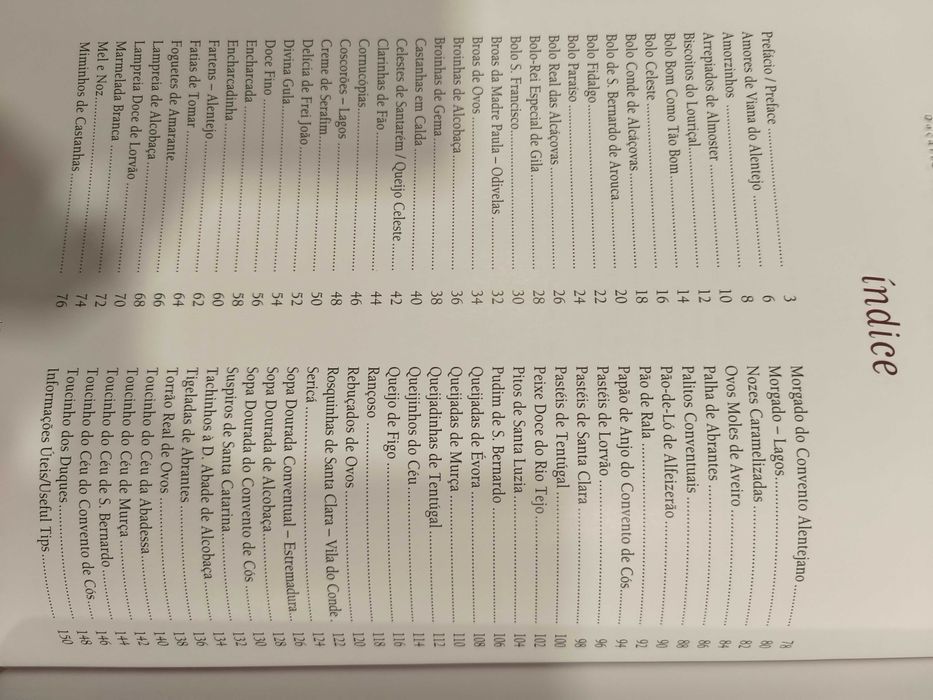 índice
Prefácio / Preface ........ 3
Amores de Viana do Alentejo ........ 6
Amorzinhos ........ 8
Arrepiados de Almoster ........ 10
Biscoitos do Louriçal ........ 12
Bolo Bom Como Tão Bom ........ 14
Bolo Celeste ........ 16
Bolo Conde de Alcáçovas ........ 18
Bolo de S. Bernardo de Arouca ........ 20
Bolo Fidalgo ........ 22
Bolo Paraíso ........ 24
Bolo Real das Alcáçovas ........ 26
Bolo-Rei Especial de Gila ........ 28
Bolo S. Francisco ........ 30
Broas da Madre Paula – Odivelas ........ 32
Broas de Ovos ........ 34
Broinhas de Alcobaça ........ 36
Broinhas de Gema ........ 38
Castanhas em Calda ........ 40
Celestes de Santarém / Queijo Celeste ........ 42
Clarinhas de Fão ........ 44
Cornucópias ........ 46
Coscorões – Lagos ........ 48
Creme de Serafim ........ 50
Delícia de Frei João ........ 52
Divina Gula ........ 54
Doce Fino ........ 56
Encharcada ........ 58
Encharcadinha ........ 60
Fartens – Alentejo ........ 62
Fatias de Tomar ........ 64
Foguetes de Amarante ........ 66
Lampreia de Alcobaça ........ 68
Lampreia Doce de Lorvão ........ 70
Marmelada Branca ........ 72
Mel e Noz ........ 74
Miminhos de Castanhas ........ 76
Morgado do Convento Alentejano ........ 78
Morgado – Lagos ........ 80
Nozes Caramelizadas ........ 82
Ovos Moles de Aveiro ........ 84
Palha de Abrantes ........ 86
Palitos Conventuais ........ 88
Pão-de-Ló de Alfeizerão ........ 90
Pão de Rala ........ 92
Papão de Anjo do Convento de Cós ........ 94
Pastéis de Lorvão ........ 96
Pastéis de Santa Clara ........ 98
Pastéis de Tentúgal ........ 100
Peixe Doce do Rio Tejo ........ 102
Pitos de Santa Luzia ........ 104
Pudim de S. Bernardo ........ 106
Queijadas de Évora ........ 108
Queijadas de Murça ........ 110
Queijadinhas de Tentúgal ........ 112
Queijinhos do Céu ........ 114
Queijo de Figo ........ 116
Rançoso ........ 118
Rebuçados de Ovos ........ 120
Rosquinhas de Santa Clara – Vila do Conde . 122
Sericá ........ 124
Sopa Dourada Conventual – Estremadura ........ 126
Sopa Dourada de Alcobaça ........ 128
Sopa Dourada do Convento de Cós ........ 130
Suspiros de Santa Catarina ........ 132
Tachinhos à D. Abade de Alcobaça ........ 134
Tigeladas de Abrantes ........ 136
Torrão Real de Ovos ........ 138
Toucinho do Céu da Abadessa ........ 140
Toucinho do Céu de Murça ........ 142
Toucinho do Céu de S. Bernardo ........ 144
Toucinho do Céu do Convento de Cós ........ 146
Toucinho dos Duques ........ 148
Informações Úteis/Useful Tips ........ 150